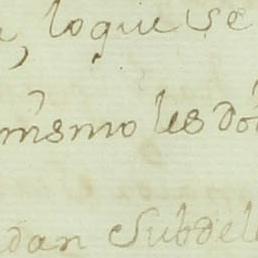 , lo que se
mismo les
dan Subdel